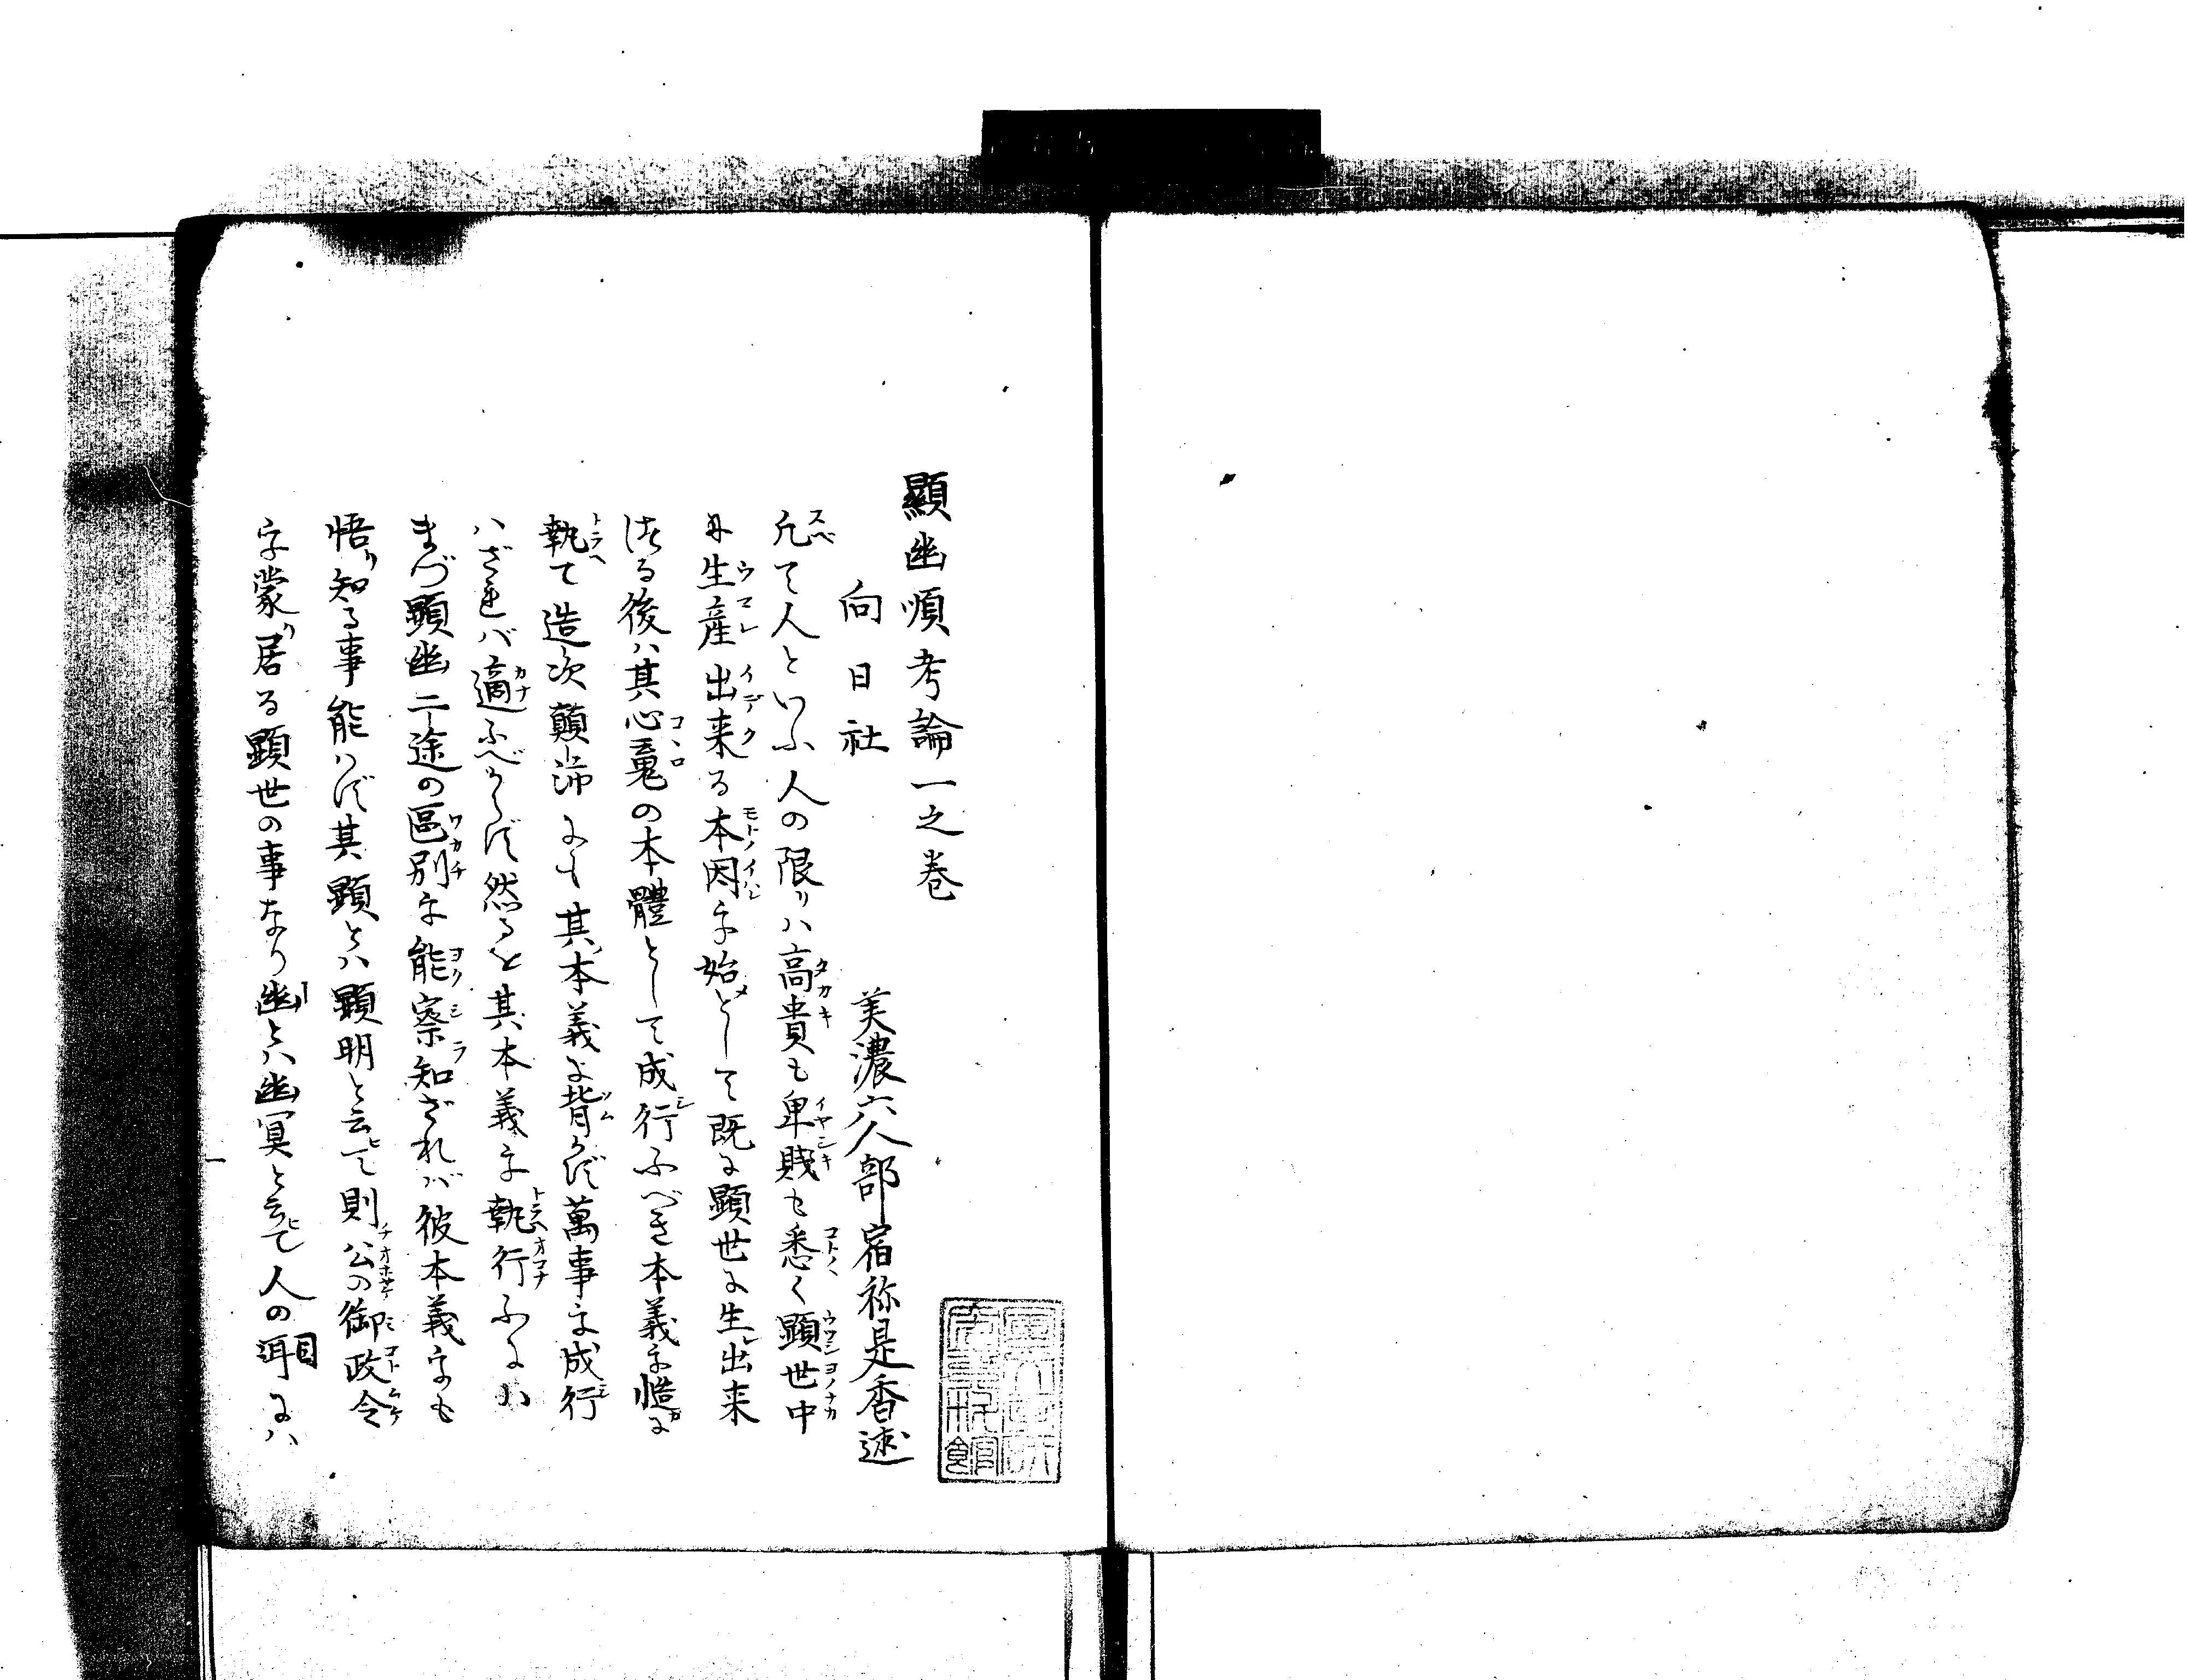 顯幽順考論一之巻
向日社
美濃六人部宿祢是香述
凡て人といふ人の限りハ高貴も卑賎も悉く顕世中
に生産出来る本因を始めとして既に顕世に生出来
つる後ハ其心魂の本體として成行ふべき本義を慥に
執て造次顛沛にも其本義に背かず萬事を成行
ハざれバ適ふべからず然るを其本義を執行ふにハ
まづ顕幽二途の區別を能察知ざれバ彼本義をも
悟り知る事能ハず其顕とハ顕明と云ひて則公の御政令
を蒙り居る顕世の事なり幽とハ幽冥と云ひて人の耳目にハ
一